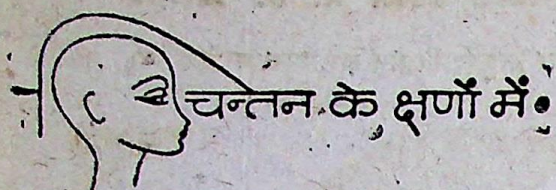 चिन्तन के क्षणों में